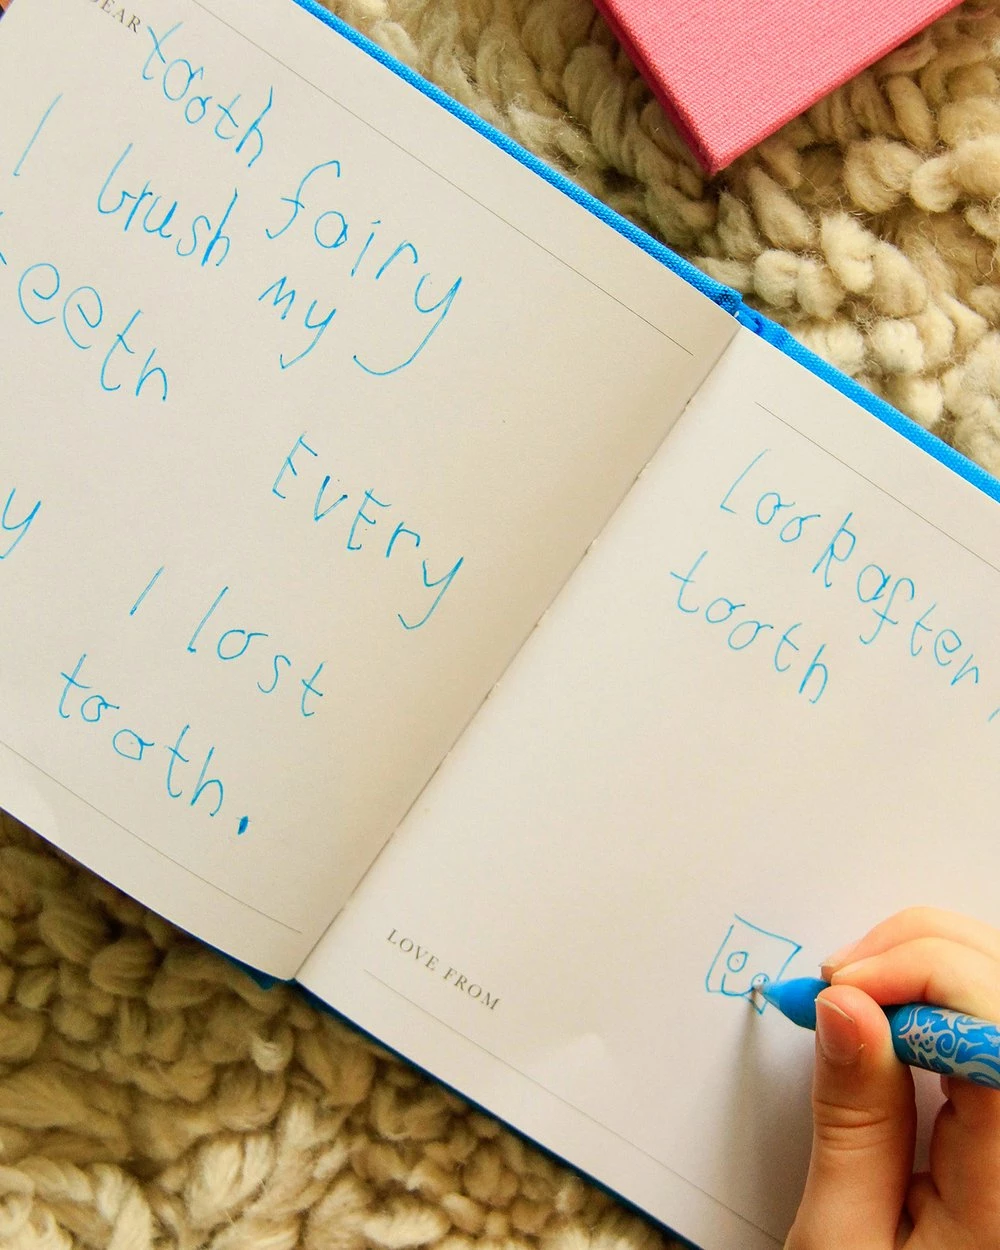 DEAR tooth fairy
I brush my
teeth EvEry
y I lost
tooth.
LooK after
tooth
LOVE FROM